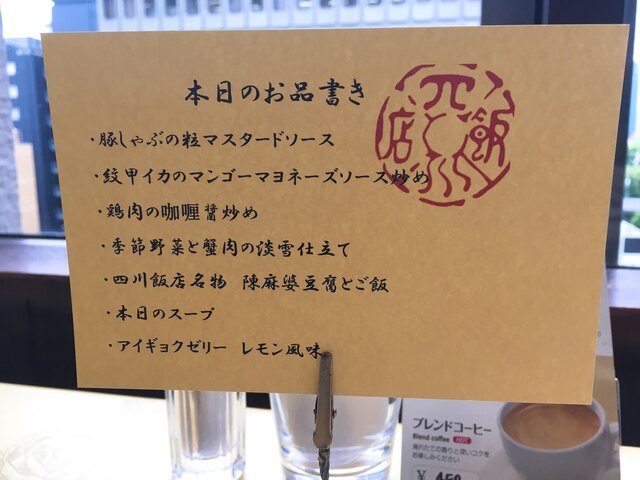 本日のお品書き
・豚しゃぶの粒マスタードソース
・紋甲イカのマンゴーマヨネーズソース炒め
・鶏肉の咖喱醤炒め
・季節野菜と蟹肉の淡雪仕立て
・四川飯店名物 陳麻婆豆腐とご飯
・本日のスープ
・アイギョクゼリー レモン風味
ブレンドコーヒー
Blend coffee HOT
淹れたての香りと深いコクを
お楽しみください
¥450